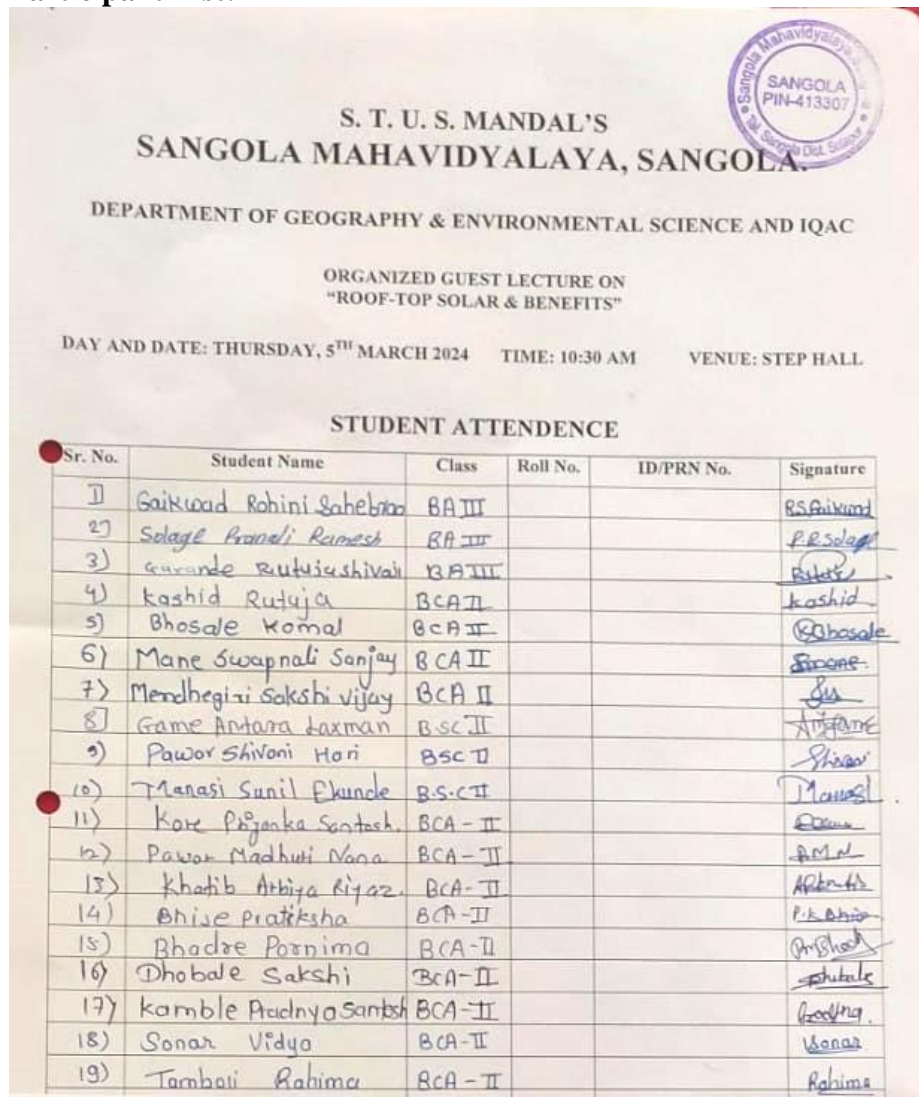 Sangola Mahavidyalaya
SANGOLA
PIN-413307
Tal. Sangola Dist. Solapur
S. T. U. S. MANDAL'S
SANGOLA MAHAVIDYALAYA, SANGOLA.
DEPARTMENT OF GEOGRAPHY & ENVIRONMENTAL SCIENCE AND IQAC
ORGANIZED GUEST LECTURE ON
"ROOF-TOP SOLAR & BENEFITS"
DAY AND DATE: THURSDAY, 5TH MARCH 2024 TIME: 10:30 AM VENUE: STEP HALL
STUDENT ATTENDENCE
Sr. No. Student Name Class Roll No. ID/PRN No. Signature
1) Gaikwad Rohini Sahebrao BA III R.S.Gaikwad
2) Solage Pranali Ramesh BA III P.R.Solage
3) Gavande Rutuja shivaji BA III
4) Kashid Rutuja BCA II Kashid
5) Bhosale Komal BCA II KBhosale
6) Mane Swapnali Sanjay BCA II
7) Mendhegiri Sakshi Vijay BCA II
8) Game Antara Laxman B.SC II
9) Pawar Shivani Hari BSC II
10) Manasi Sunil Ekunde B.S.C II Manasi
11) Kore Priyanka Santosh. BCA - II
12) Pawar Madhuri Nana BCA - II P.M.N
13) Khatib Arbiya Riyaz. BCA - II
14) Bhise Pratiksha BCA - II P.K.Bhise
15) Bhadre Pornima BCA - II
16) Dhobale Sakshi BCA - II
17) Kamble Pradnya Santosh BCA - II
18) Sonar Vidya BCA - II Sonar
19) Tamboli Rahima BCA - II Rahima